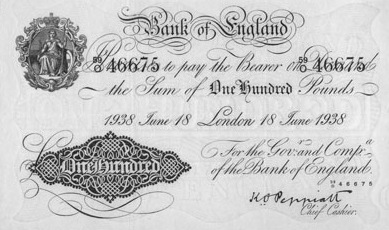 Bank of England
59/O 46675 to pay the Bearer on 59/O 46675
the Sum of One Hundred Pounds
1938 June 18 London 18 June 1938
For the Govr and Compa
of the Bank of England.
One Hundred
59/O 46675
K.O. Peppiatt
Chief Cashier.